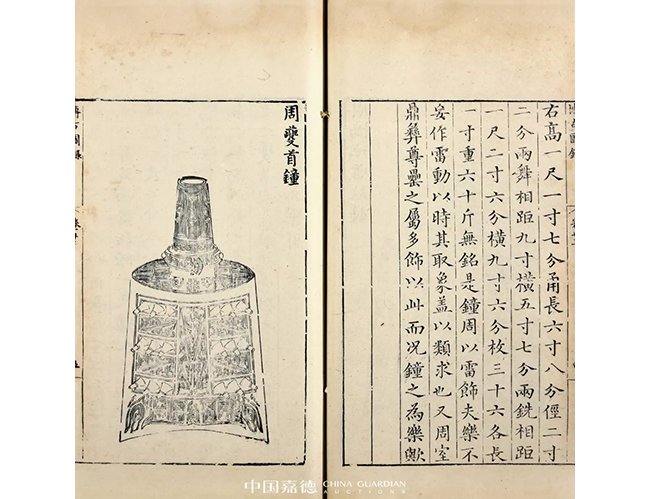 右高一尺一寸七分甬長六寸八分俓二寸
二分兩舞相距九寸橫五寸七分兩銑相距
一尺二寸六分橫九寸六分枚三十六各長
一寸重六十斤無銘是鐘周以雷飾夫樂不
妄作雷動以時其取象盖以類求也又周室
鼎彝尊罍之屬多飾以此而况鐘之為樂歟
周夔首鐘
博古圖錄
中国嘉德 CHINA GUARDIAN
AUCTIONS